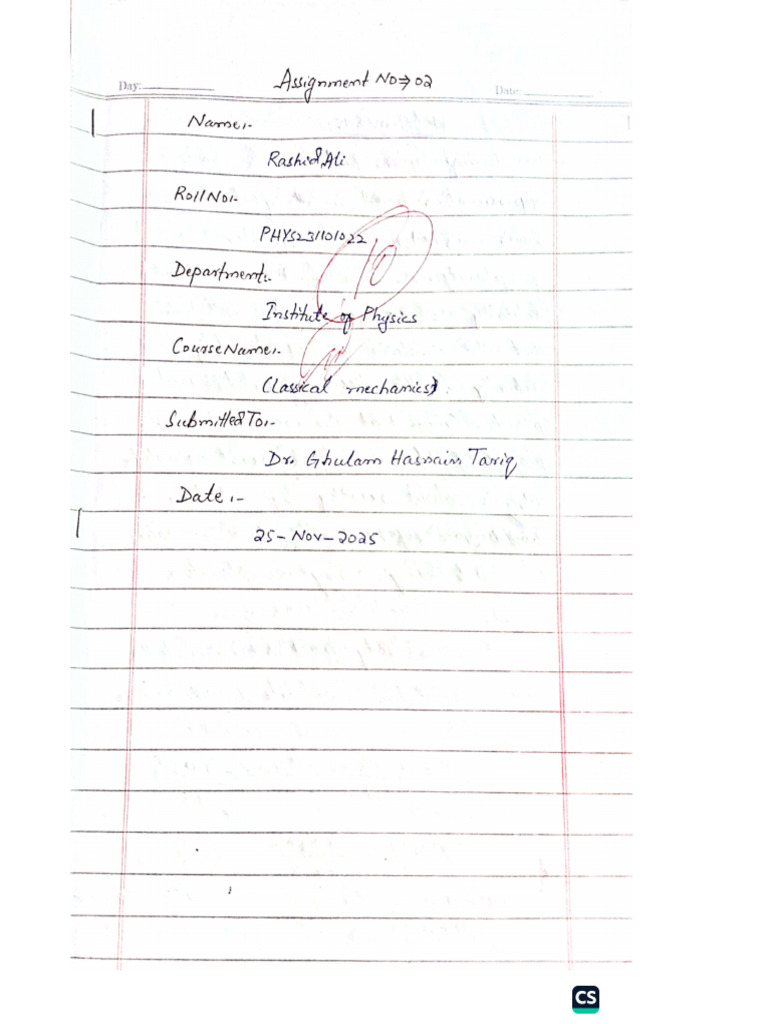 Assignment No⇒02
Day:
Date:
Name:-
Rashid Ali
Roll No:-
PHYS231101022
10
Department:-
Institute of Physics
Course Name:-
10
Classical mechanics)
Submitted To:-
Dr. Ghulam Hasnain Tariq
Date:-
25-Nov-2025
CS